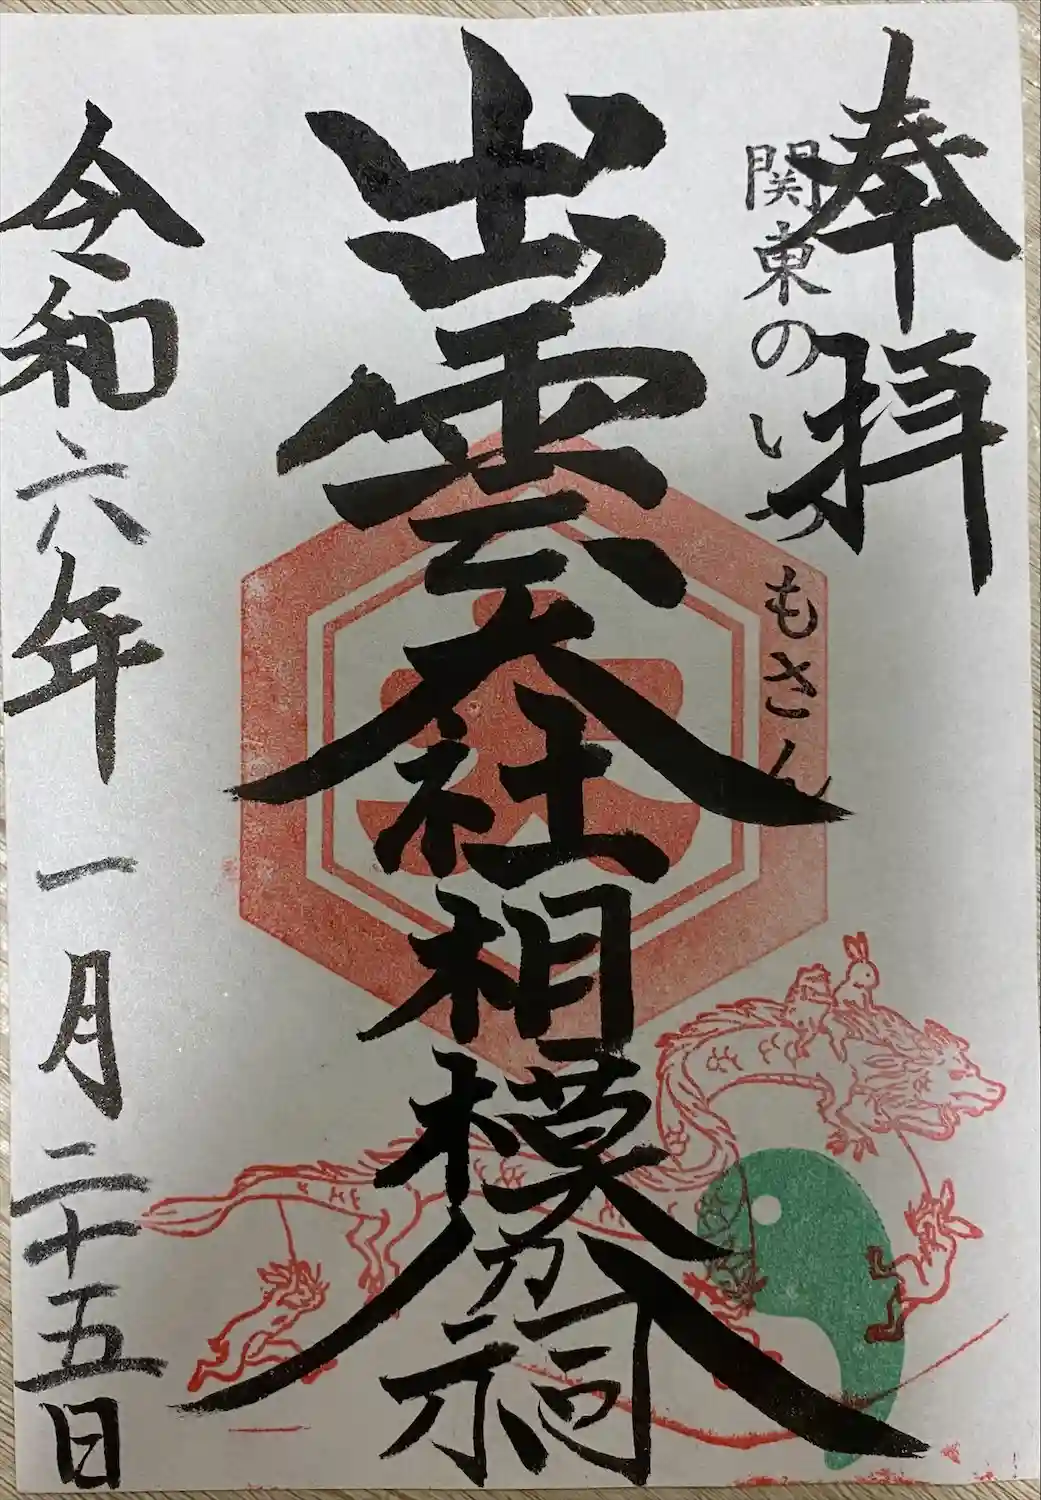 奉拝
関東のいつもさん
出雲大社相模分祠
令和六年一月二十五日